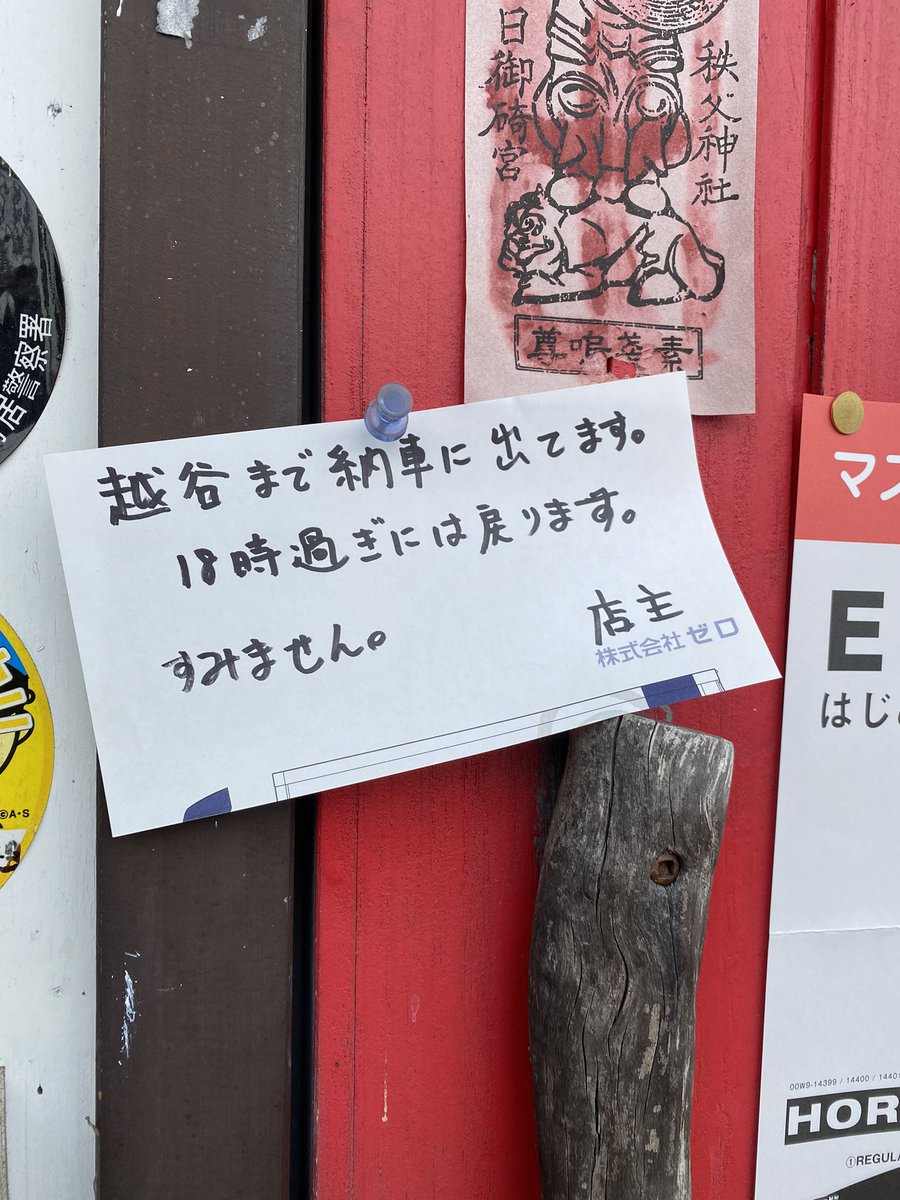 日御碕宮
秩父神社
素盞嗚尊
越谷まで納車に出てます。
18時過ぎには戻ります。
すみません。
店主
株式会社ゼロ
居警察署
©A·S
マス
E
はじめ
00W9-14399 / 14400 / 1440
HOR
①REGULA